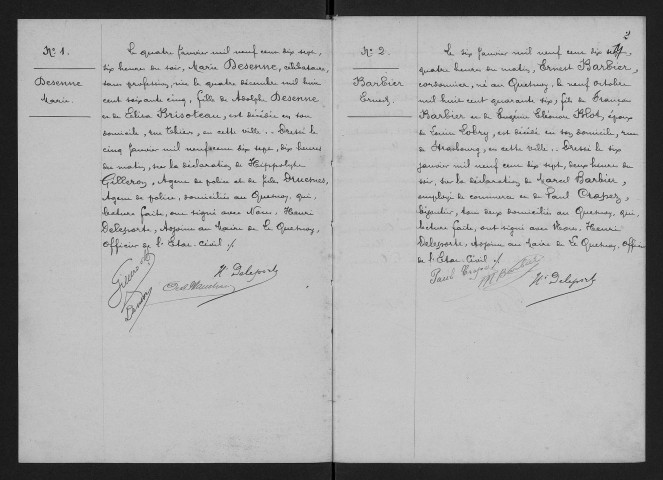 N° 1.
Desenne
Marie.
Le quatre janvier mil neuf cent dix sept,
dix heures du soir, Marie Desenne, célibataire,
sans profession, née le quatre décembre mil huit
cent soixante cinq, fille de Adolphe Desenne
et de Elisa Brisoteau, est décédée en son
domicile, rue Thiers, en cette ville.. Dressé le
cinq janvier mil neuf cent dix sept, dix heures
du matin, sur la déclaration de Hippolyte
Gilleron, Agent de police et de Jules Druesnes,
Agent de police, domiciliés au Quesnoy, qui,
lecture faite, ont signé avec Nous. Henri
Deleporte, Adjoint au Maire de Le Quesnoy,
Officier de l'Etat-Civil ./.
H. Deleporte
2
N° 2.
Barbier
Ernest.
Le dix janvier mil neuf cent dix sept,
quatre heures du matin, Ernest Barbier,
cordonnier, né au Quesnoy, le neuf octobre
mil huit cent quarante six, fils de François
Barbier et de Eugénie Eléonore Blot, époux
de Louise Lobry, est décédé en son domicile, rue
de Strasbourg, en cette ville.. Dressé le dix
janvier mil neuf cent dix sept, deux heures du
soir, sur la déclaration de Marcel Barbier,
employé de commerce et de Paul Crapez,
bijoutier, tous deux domiciliés au Quesnoy, qui,
lecture faite, ont signé avec Nous. Henri
Deleporte, Adjoint au Maire de Le Quesnoy, Officier
de l'Etat-Civil ./.
Paul Crapez M Barbier
H. Deleporte